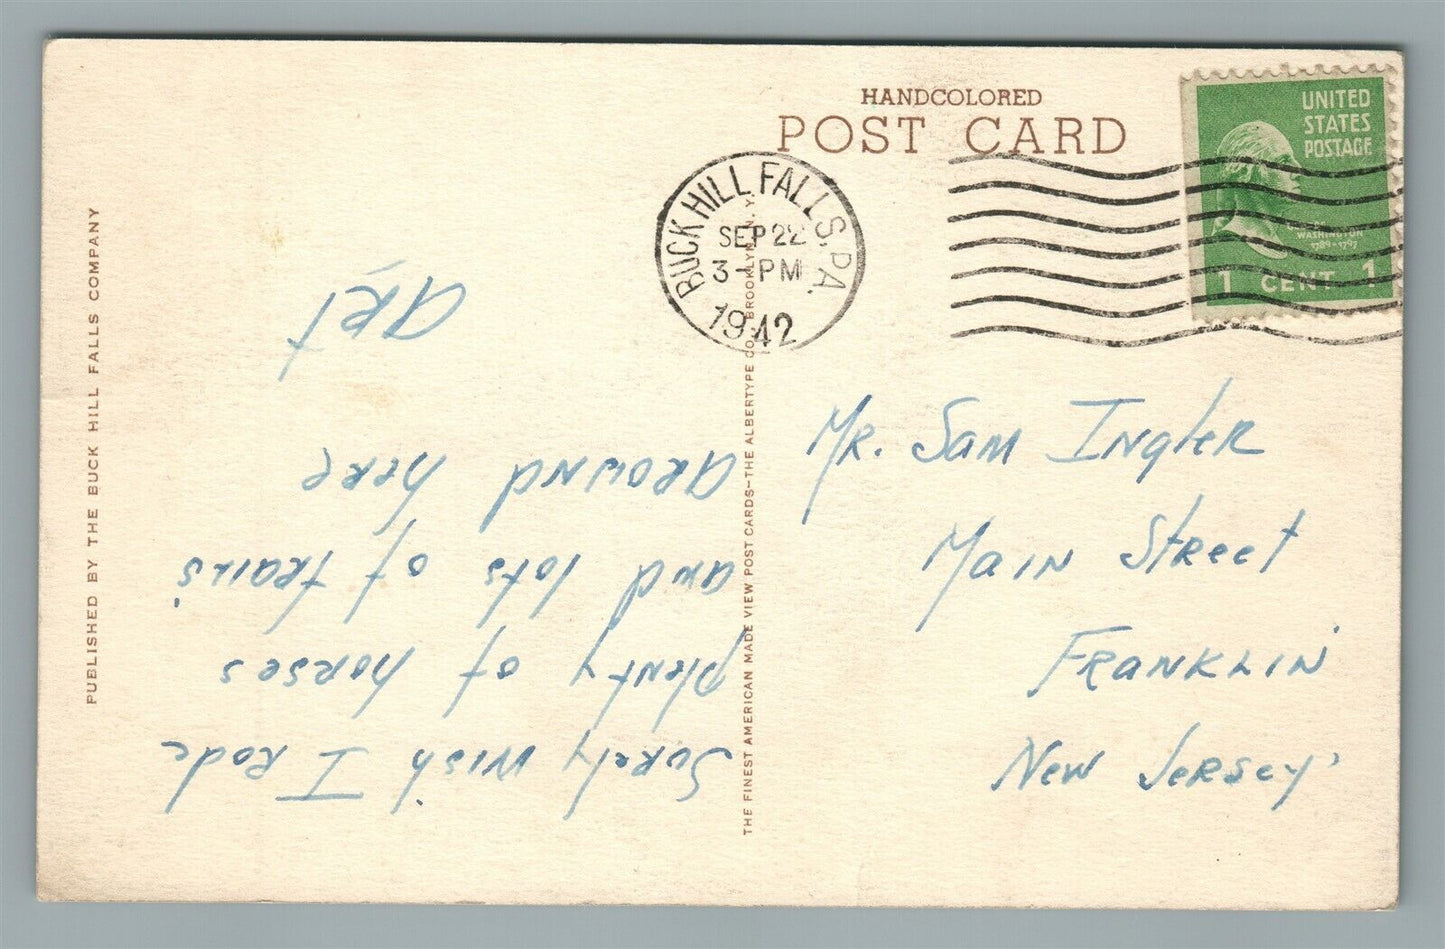 HANDCOLORED
POST CARD
UNITED
STATES
POSTAGE
WASHINGTON
1789-1797
1 CENT 1
BUCK HILL FALLS, PA.
SEP 22
3-PM
1942
Surely wish I Rode
plenty of horses
and lots of trails
around here
Art
Mr. Sam Ingler
Main Street
Franklin
New Jersey
PUBLISHED BY THE BUCK HILL FALLS COMPANY
THE FINEST AMERICAN MADE VIEW POST CARDS—THE ALBERTYPE CO., BROOKLYN, N. Y.